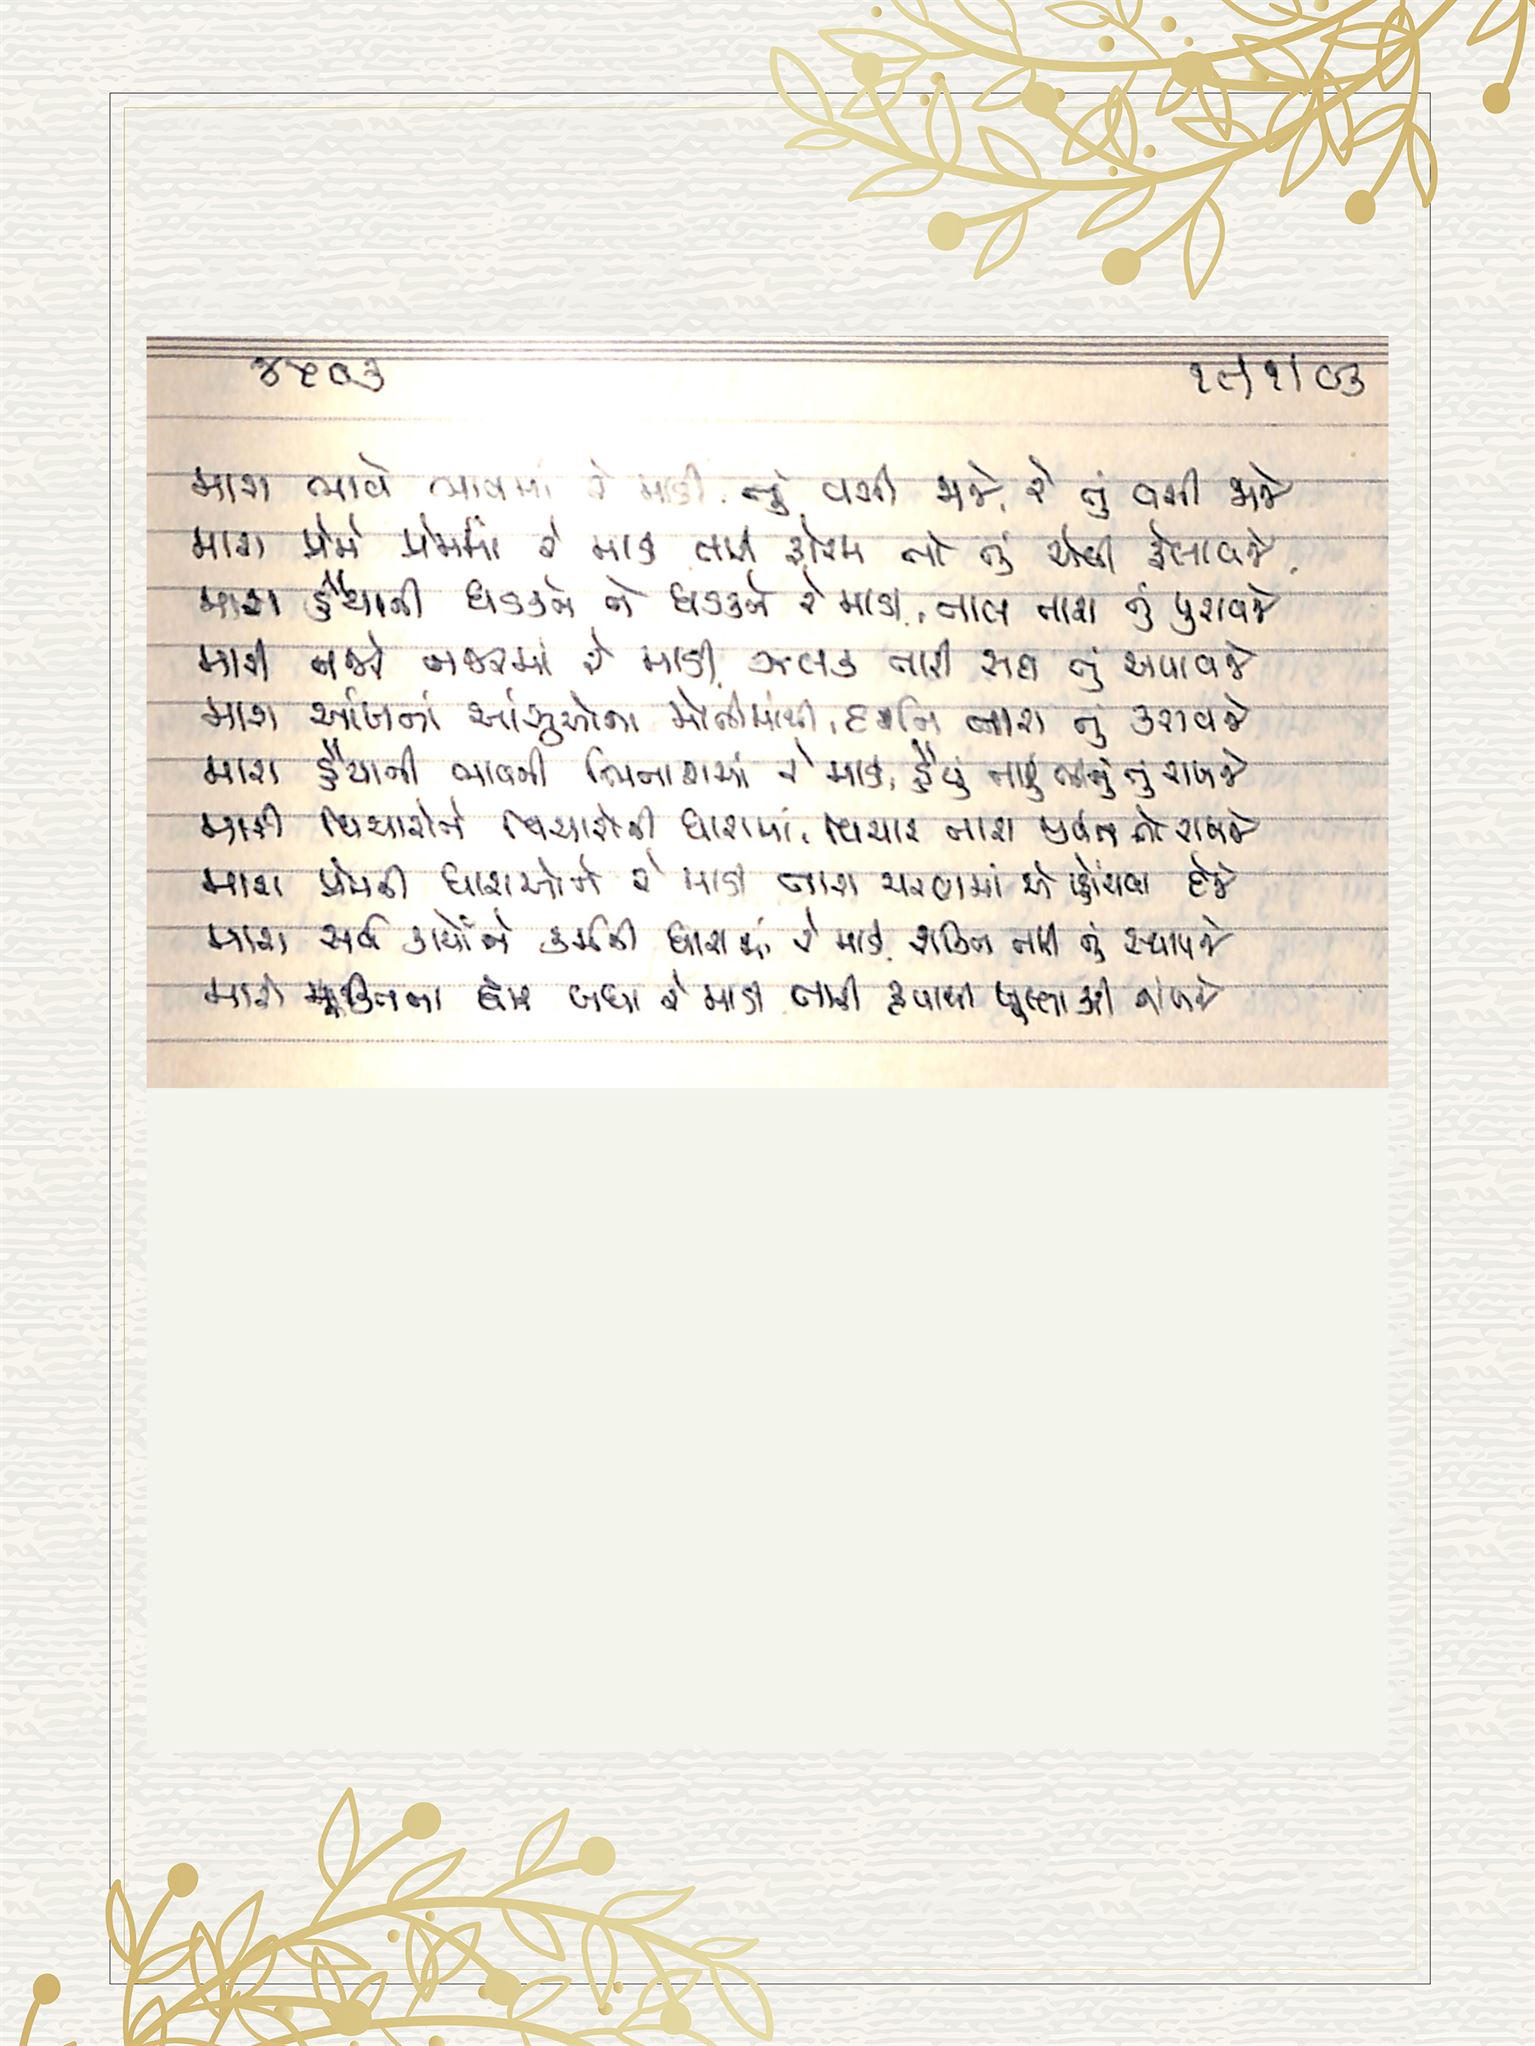 ૪૫૦૩ ૧૯/૧/૦૩
મારા ભાવે ભાવમાં રે માડી, તું વસી જાજે, રે તું વસી જાજે
મારા પ્રેમે પ્રેમમાં રે માડી તારી ફોરમ તો તું એવી ફેલાવજે.
મારા હૈયાની ધડકને ને ધડકને રે માડી, તાલ તારા તું પુરાવજે
મારી નજરે નજરમાં રે માડી, ઝલક તારી સદા તું અપાવજે
મારા આંખનાં આંસુઓના મોતીમાંથી, દર્શન તારા તું કરાવજે
મારા હૈયાની ભાવની ભિનાશમાં રે માડી, હૈયું તારું ભીનું તું રાખજે
માડી વિચારોને વિચારોની ધારામાં, વિચાર તારા તો રાખજે
મારા પ્રેમની ધારાઓને રે માડી તારા ચરણમાં એ પહોંચવા દેજે
મારા સર્વ કાર્યોને કર્મની ધારામાં રે માડી, શક્તિ તારી તું સ્થાપજે
મારો મુક્તિના દ્વાર બધા રે માડી તારી કૃપાથી ખુલ્લા કરી નાંખજે